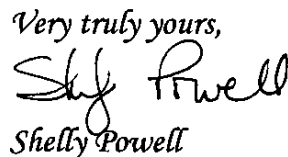 Very truly yours,
Shelly Powell
Shelly Powell